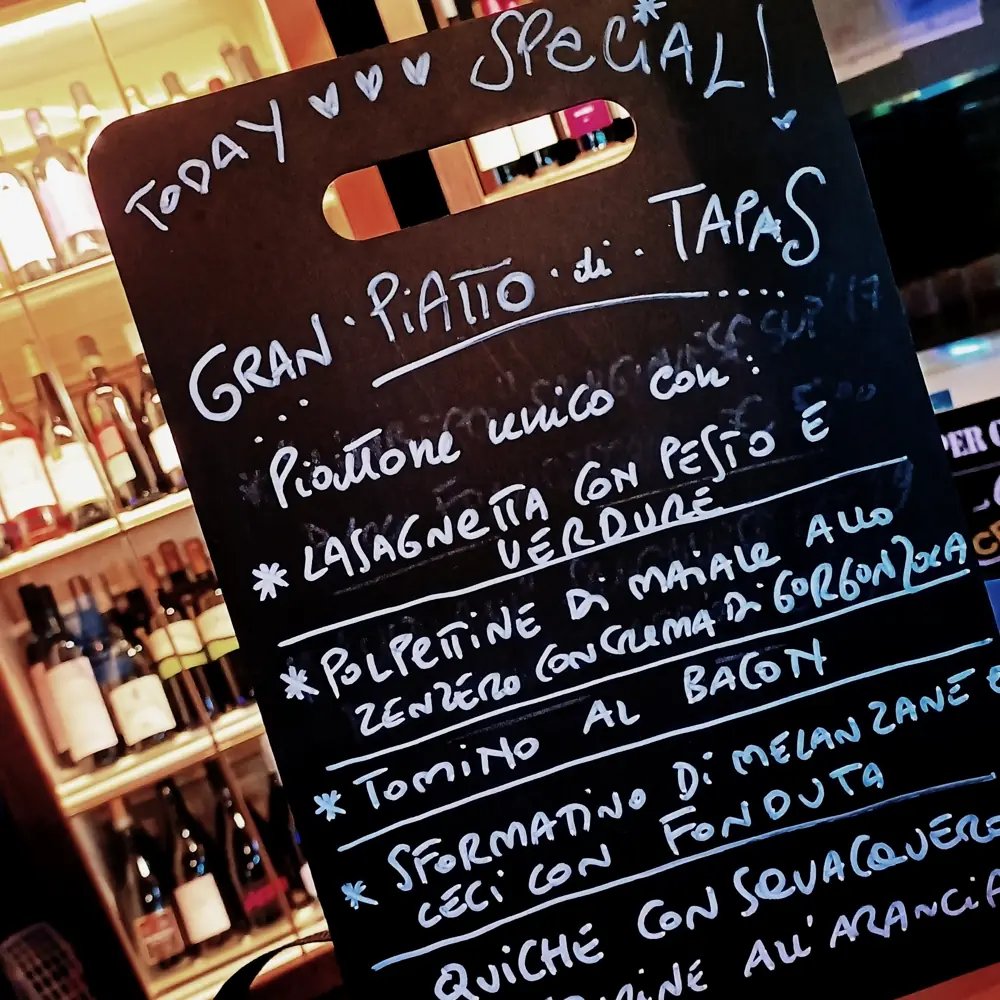 TODAY SPECIAL!
GRAN PIATTO di TAPAS
Piattone unico con:
* LASAGNETTA CON PESTO E
VERDURE
* POLPETTINE Di MAIALE ALLO
ZENZERO CON CREMA Di GORGONZOLA
* TOMINO AL BACON
* SFORMATINO Di MELANZANE E
CECI CON FONDUTA
QUICHÉ CON SQUACQUERO
ALL'ARANCIA